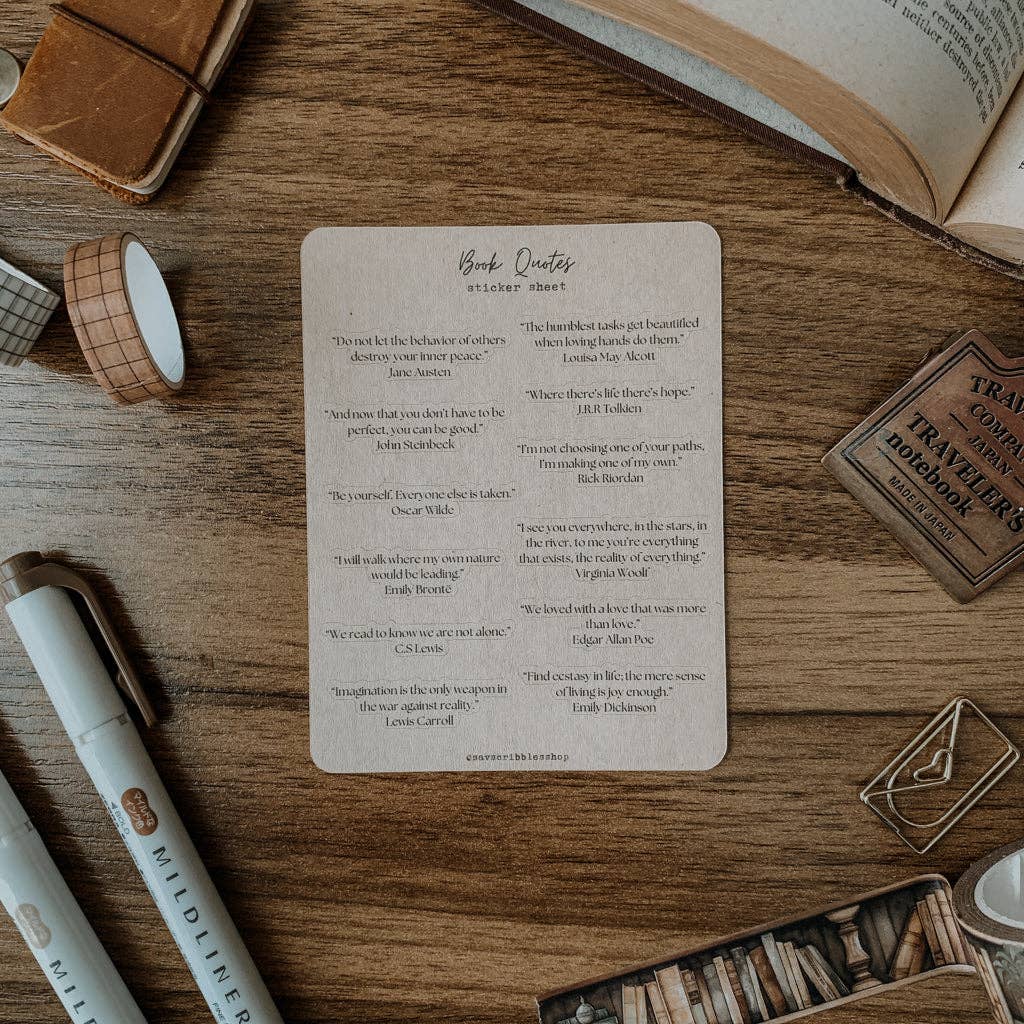 Book Quotes
sticker sheet
"Do not let the behavior of others
destroy your inner peace."
Jane Austen
"And now that you don't have to be
perfect, you can be good."
John Steinbeck
"Be yourself. Everyone else is taken."
Oscar Wilde
"I will walk where my own nature
would be leading."
Emily Brontë
"We read to know we are not alone."
C.S Lewis
"Imagination is the only weapon in
the war against reality."
Lewis Carroll
"The humblest tasks get beautified
when loving hands do them."
Louisa May Alcott
"Where there's life there's hope."
J.R.R Tolkien
"I'm not choosing one of your paths,
I'm making one of my own."
Rick Riordan
"I see you everywhere, in the stars, in
the river, to me you're everything
that exists, the reality of everything."
Virginia Woolf
"We loved with a love that was more
than love."
Edgar Allan Poe
"Find ecstasy in life; the mere sense
of living is joy enough."
Emily Dickinson
@savscribblesshop
source of
the centuries before
neither destroyed
TRAV
COMPA
JAPAN
TRAVELER'S
notebook
MADE IN JAPAN
BOLD
MILDLINER
FINE
MILDL